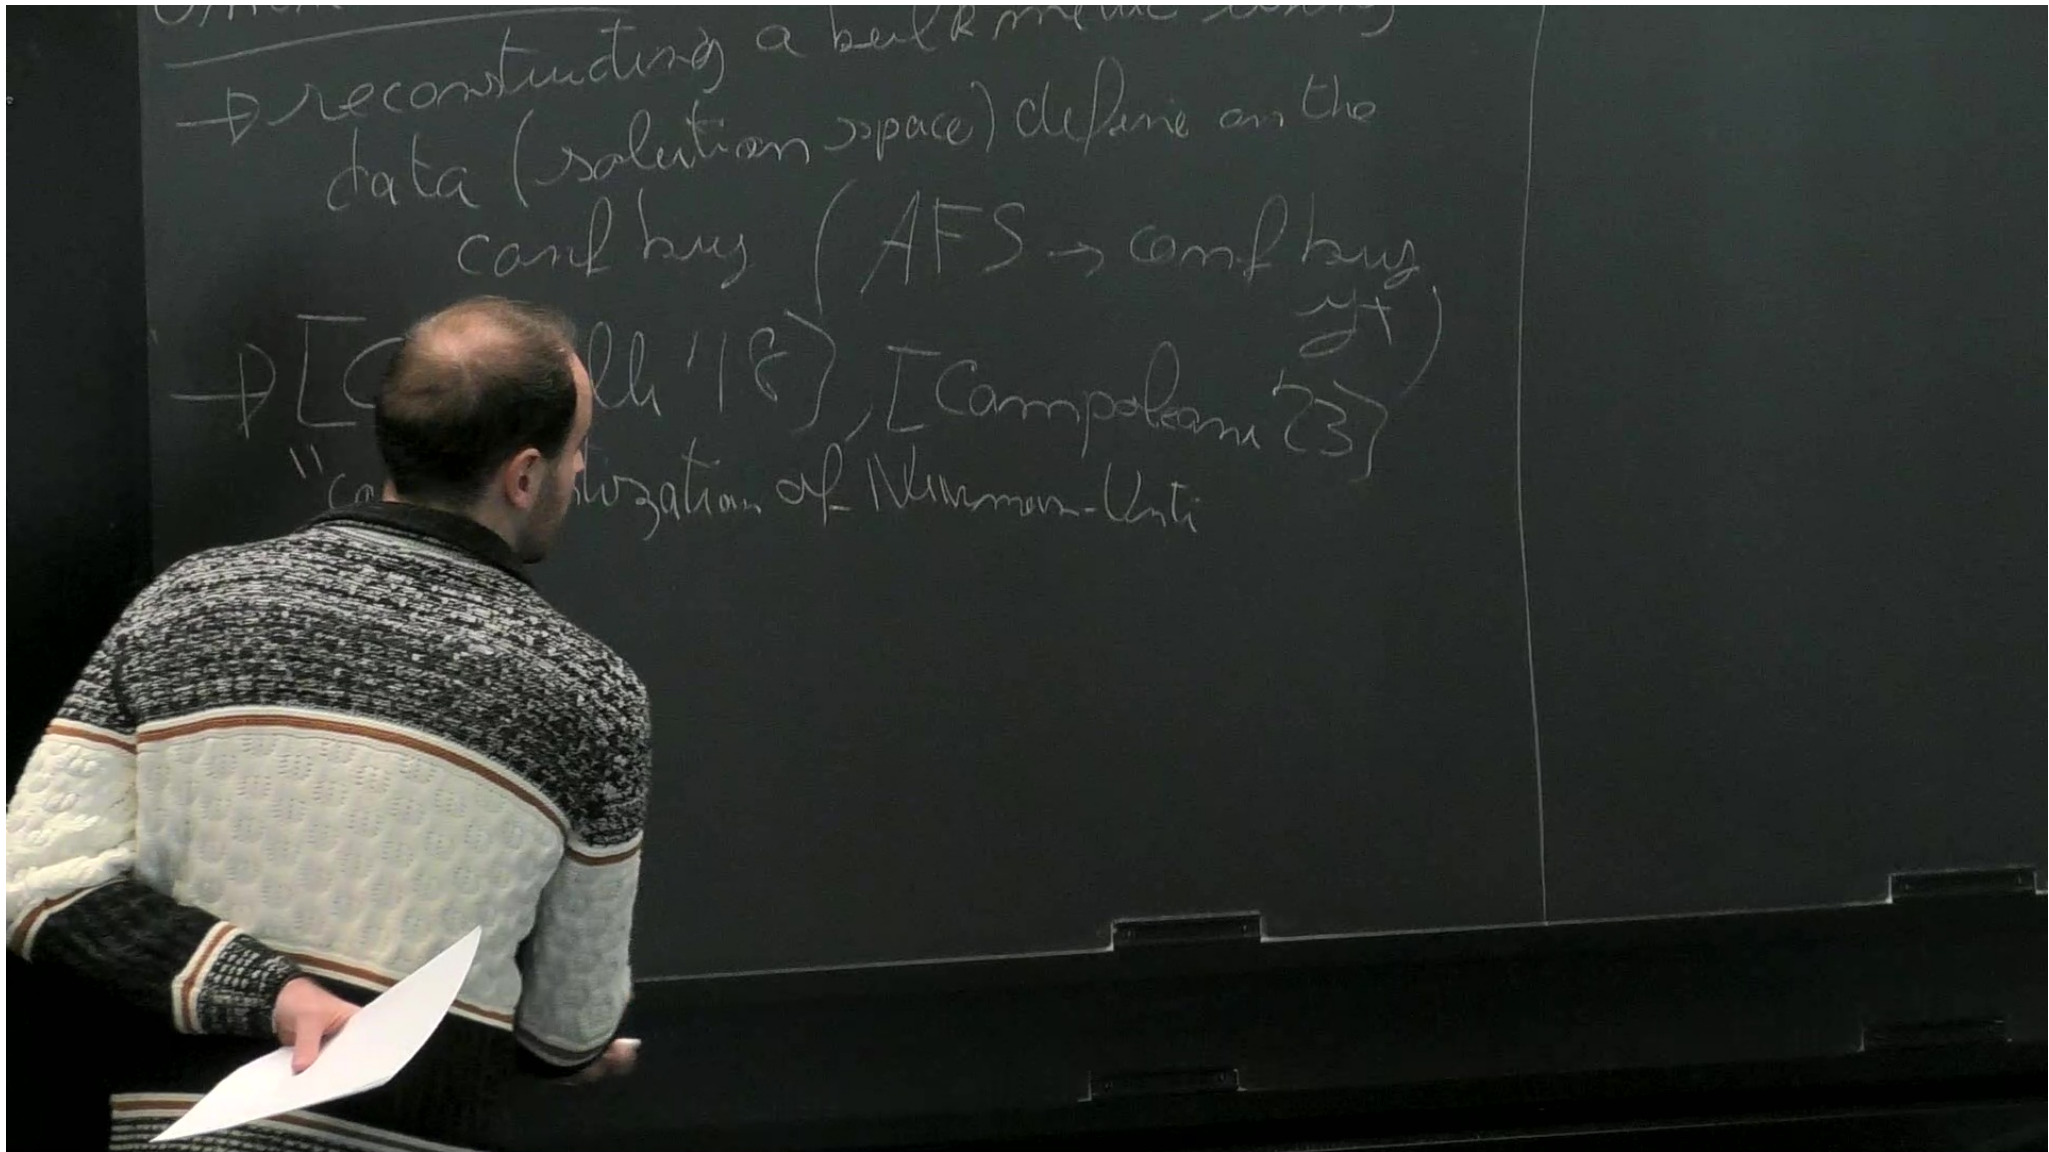 → reconstructing a bulk metric using
data (solution space) define on the
conf bry (AFS → conf bry
𝓘+)
→ [C lli '18], [Campoleoni '23]
" tization of Newman-Unti